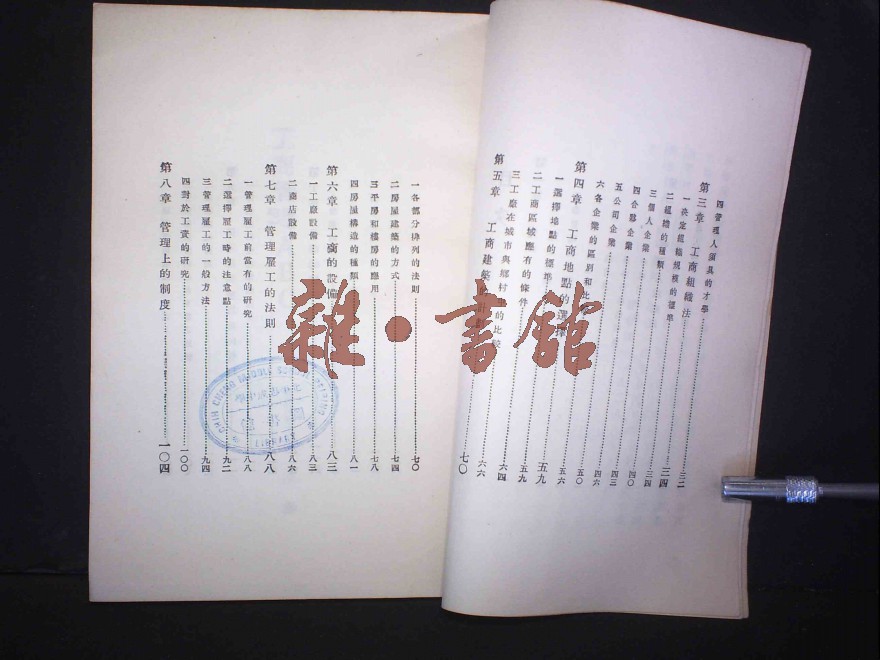 四 管理人須具的才學……三二
第三章 工商組織法……三四
一 決定組織規模的標準……三四
二 組織的種類
三 個人企業
四 合夥企業……四〇
五 公司企業……四三
六 各企業的區別和比較……四六
第四章 工商地點的選擇……五〇
一 選擇地點的標準……五六
二 工商區域應有的條件……五九
三 工廠在城市與鄉村的比較……六四
第五章 工商建築……七〇
一 各部分排列的法則……七〇
二 房屋建築的方式……七四
三 平房和樓房的應用……七八
四 房屋構造的種類……八一
第六章 工商的設備……八三
一 工廠設備……八三
二 商店設備……八六
第七章 管理雇工的法則……八八
一 管理雇工前當有的研究……八八
二 選擇雇工時的注意點……九二
三 管理雇工的一般方法……九四
四 對於工資的研究……一〇〇
第八章 管理上的制度……一〇四
雜·書館